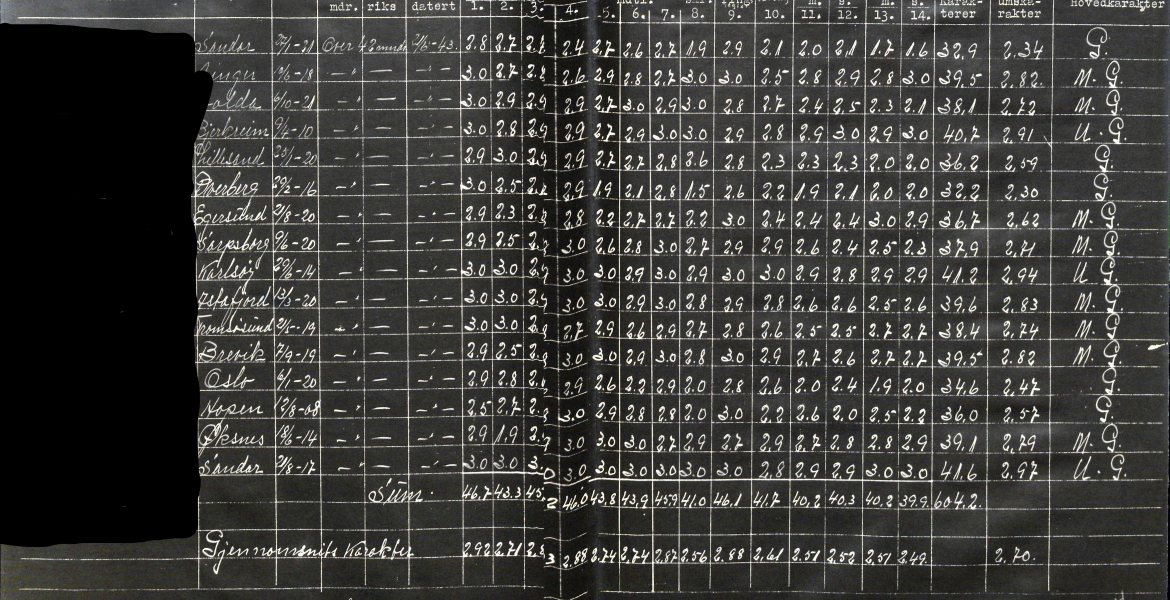 mdr. riks datert 1. 2. 3. 4. 5. 6. 7. 8. 9. 10. 11. 12. 13. 14. Karak- Hovedkarakter
terer rakter
Sandar 27/1-21 Over 42 mndr. 2/6-43. 2.8 2.7 2.4 2.7 2.6 2.7 1.9 2.9 2.1 2.0 2.1 1.7 1.6 32,9 2.34 G.
/6-18 — " — — " — 3.0 2.7 2.8 2.6 2.9 2.8 2.7 3.0 3.0 2.5 2.8 2.9 2.8 3.0 39,5 2.82 M. G.
6/10-21 — " — — " — 3.0 2.9 2.9 2.9 2.7 3.0 2.9 3.0 2.8 2.7 2.4 2.5 2.3 2.1 38,1 2.72 M. G.
Bjerkreim 9/4-10 — " — — " — 3.0 2.8 2.9 2.9 2.7 2.9 3.0 3.0 2.9 2.8 2.9 3.0 2.9 3.0 40,7 2.91 U. G.
Lillesand -20 — " — — " — 2.9 3.0 2.9 2.9 2.7 2.7 2.8 2.6 2.8 2.3 2.3 2.3 2.0 2.0 36,2 2,59 G.
29/2-16 — " — — " — 3.0 2.5 2.9 1.9 2.1 2.8 1.5 2.6 2.2 1.9 2.1 2.0 2.0 32,2 2.30 G.
Egersund 2/8-20 — " — — " — 2.9 2.3 2.8 2.2 2.7 2.7 2.2 3.0 2.4 2.4 2.4 3.0 2.9 36,7 2.62 M. G.
Sarpsborg 9/6-20 — " — — " — 2.9 2.5 3.0 2.6 2.8 3.0 2.7 2.9 2.9 2.6 2.4 2.5 2.3 37,9 2.71 M. G.
Karlsøy 29/6-14 — " — — " — 3.0 3.0 2.9 3.0 3.0 2.9 3.0 2.9 3.0 3.0 2.9 2.8 2.9 2.9 41,2 2.94 U. G.
13/3-20 — " — — " — 3.0 3.0 2.9 3.0 3.0 2.9 3.0 2.8 2.9 2.8 2.6 2.6 2.5 2.6 39,6 2.83 M. G.
Tromsøsund 2/5-19 — " — — " — 3.0 3.0 2.7 2.9 2.6 2.9 2.7 2.8 2.6 2.5 2.5 2.7 2.7 38,4 2.74 M. G.
Brevik 7/9-19 — " — — " — 2.9 2.5 3.0 3.0 2.9 3.0 2.8 3.0 2.9 2.7 2.6 2.7 2.7 39,5 2.82 M. G.
Oslo 6/1-20 — " — — " — 2.9 2.8 2.9 2.6 2.2 2.9 2.0 2.8 2.6 2.0 2.4 1.9 2.0 34,6 2,47 G.
Hopen 13/8-08 — " — — " — 2.5 2.7 3.0 2.9 2.8 2.8 2.0 3.0 2.2 2.6 2.0 2.5 2.2 36,0 2.57 G.
Øksnes 18/6-14 — " — — " — 2.9 1.9 3.0 3.0 3.0 2.7 2.9 2.7 2.9 2.7 2.8 2.8 2.9 39,1 2,79 M. G.
Sandar 2/8-17 — " — — " — 3.0 3.0 3.0 3.0 3.0 3.0 3.0 3.0 3.0 2.8 2.9 2.9 3.0 3.0 41,6 2.97 U. G.
Sum. 46,7 43,3 45,2 46,0 43,8 43,9 45,9 41,0 46,1 41,7 40,2 40,3 40,2 39,9 604,2.
Gjennomsnitts karakter 2.92 2.71 2.88 2.74 2.74 2.87 2.56 2.88 2.61 2.51 2.52 2.51 2.49. 2.70.